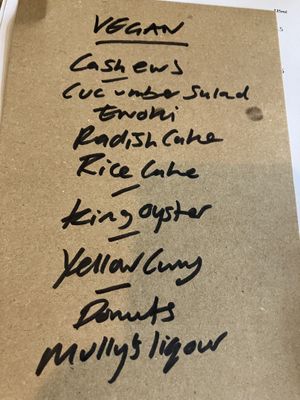 VEGAN
Cashews
Cucumber Salad
Enoki
Radish Cake
Rice Cake
King oyster
Yellow Curry
Donuts
Mully's liqour